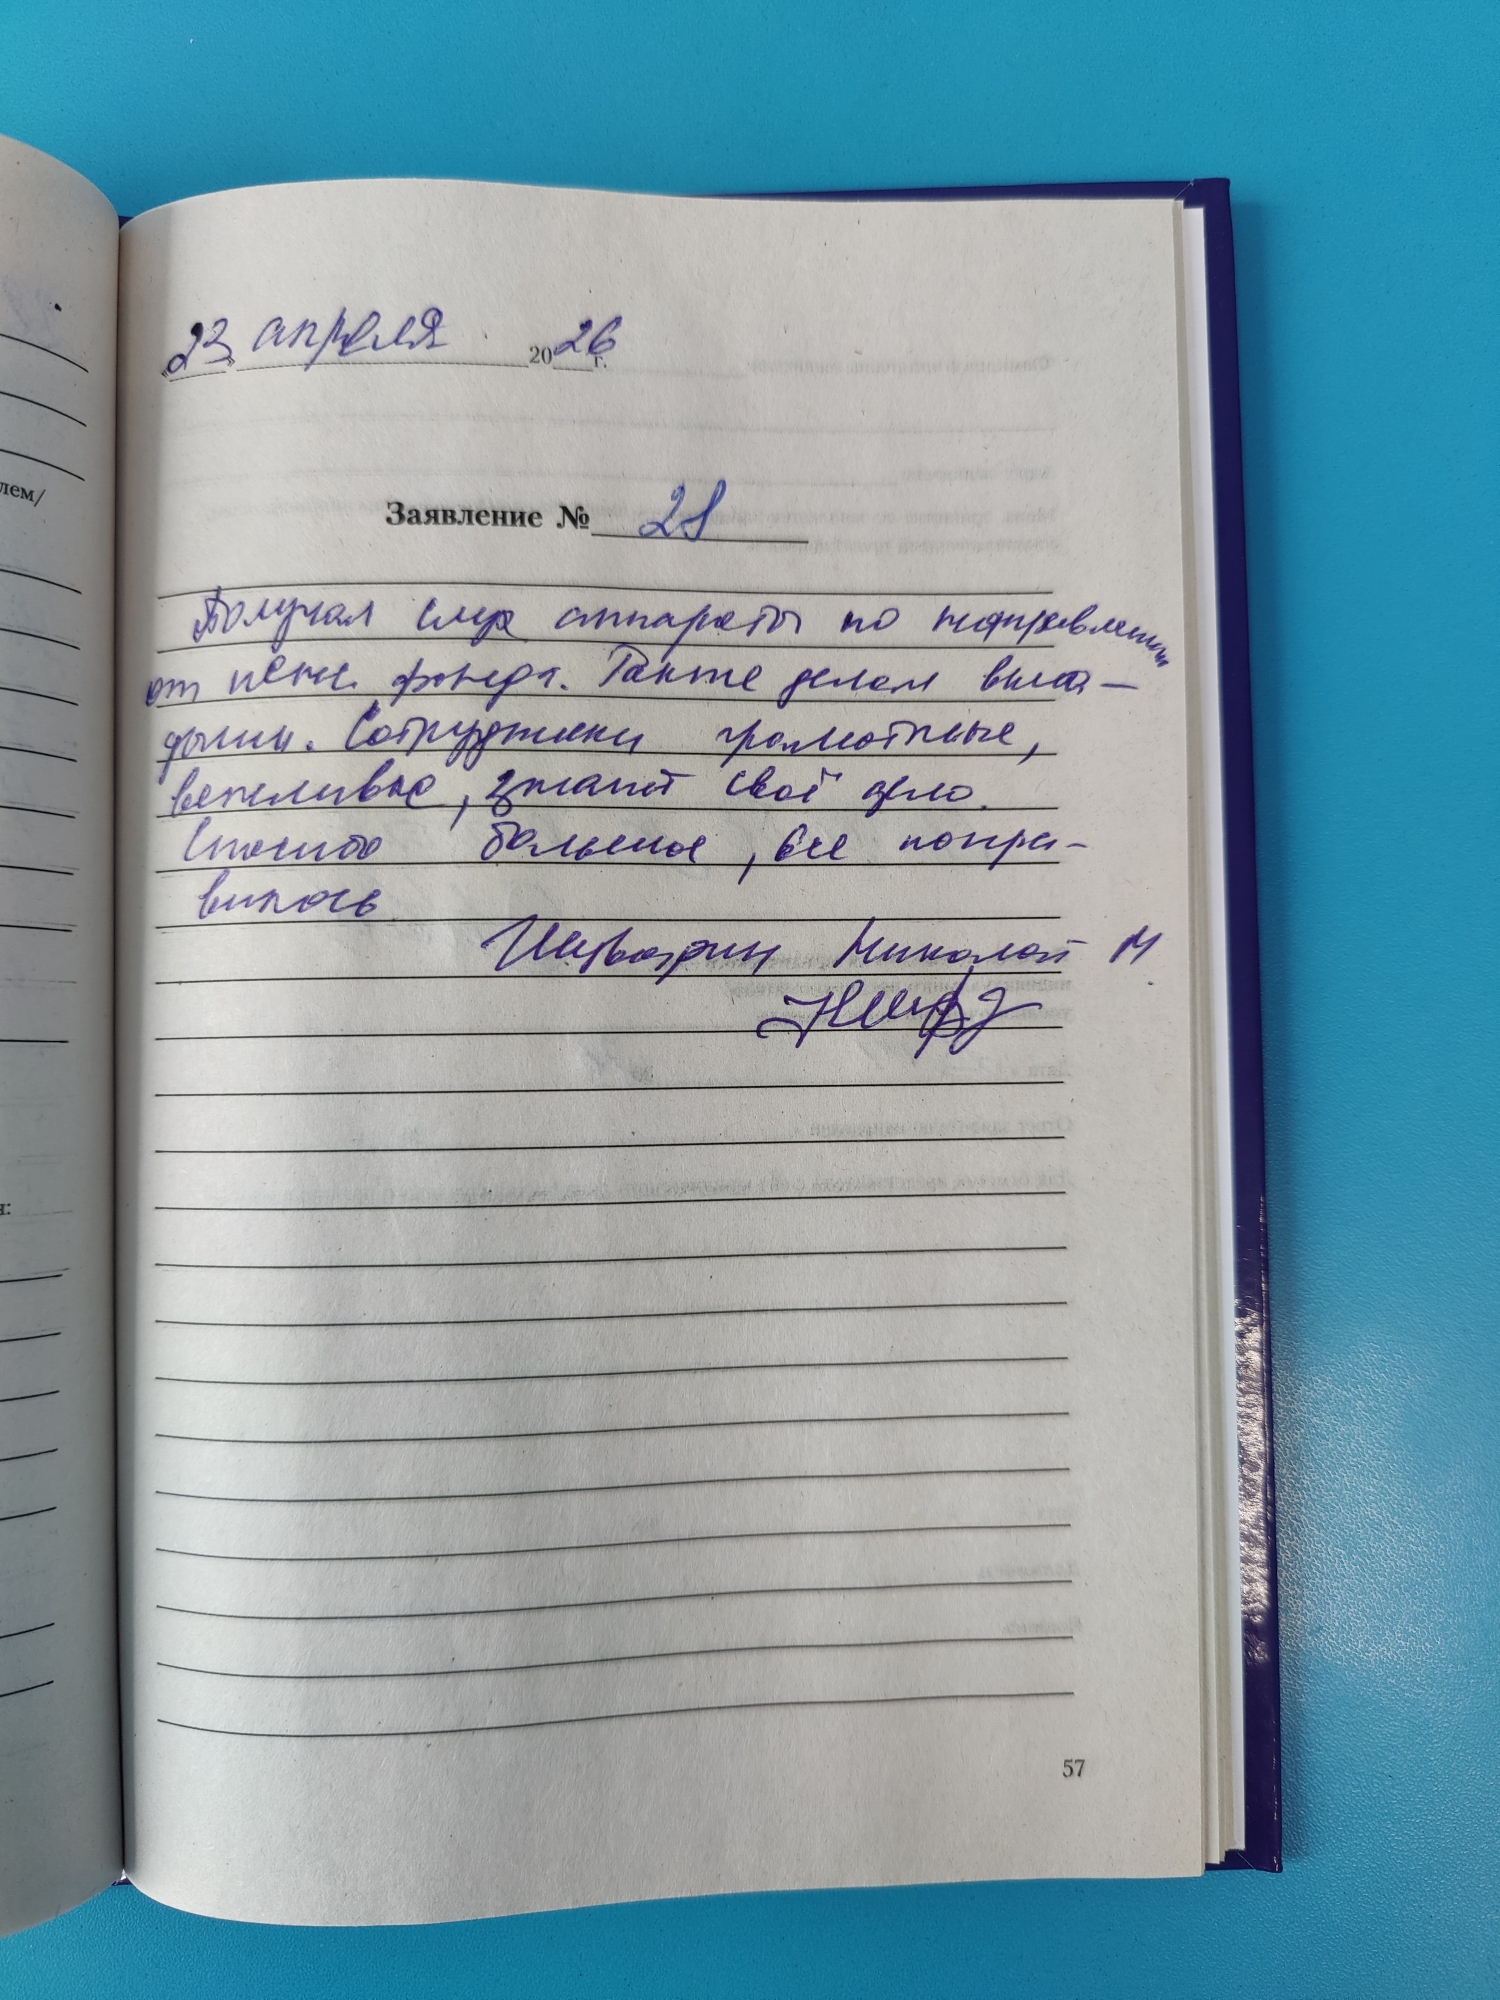 лем/
23 апреля 2026 г.
Заявление № 28
Получал слух аппараты по направлению
от пенс. фонда. Также делал вкла-
дыши. Сотрудники грамотные,
вежливые, знают своё дело.
Спасибо большое, все понра-
вилось
Николай М
57